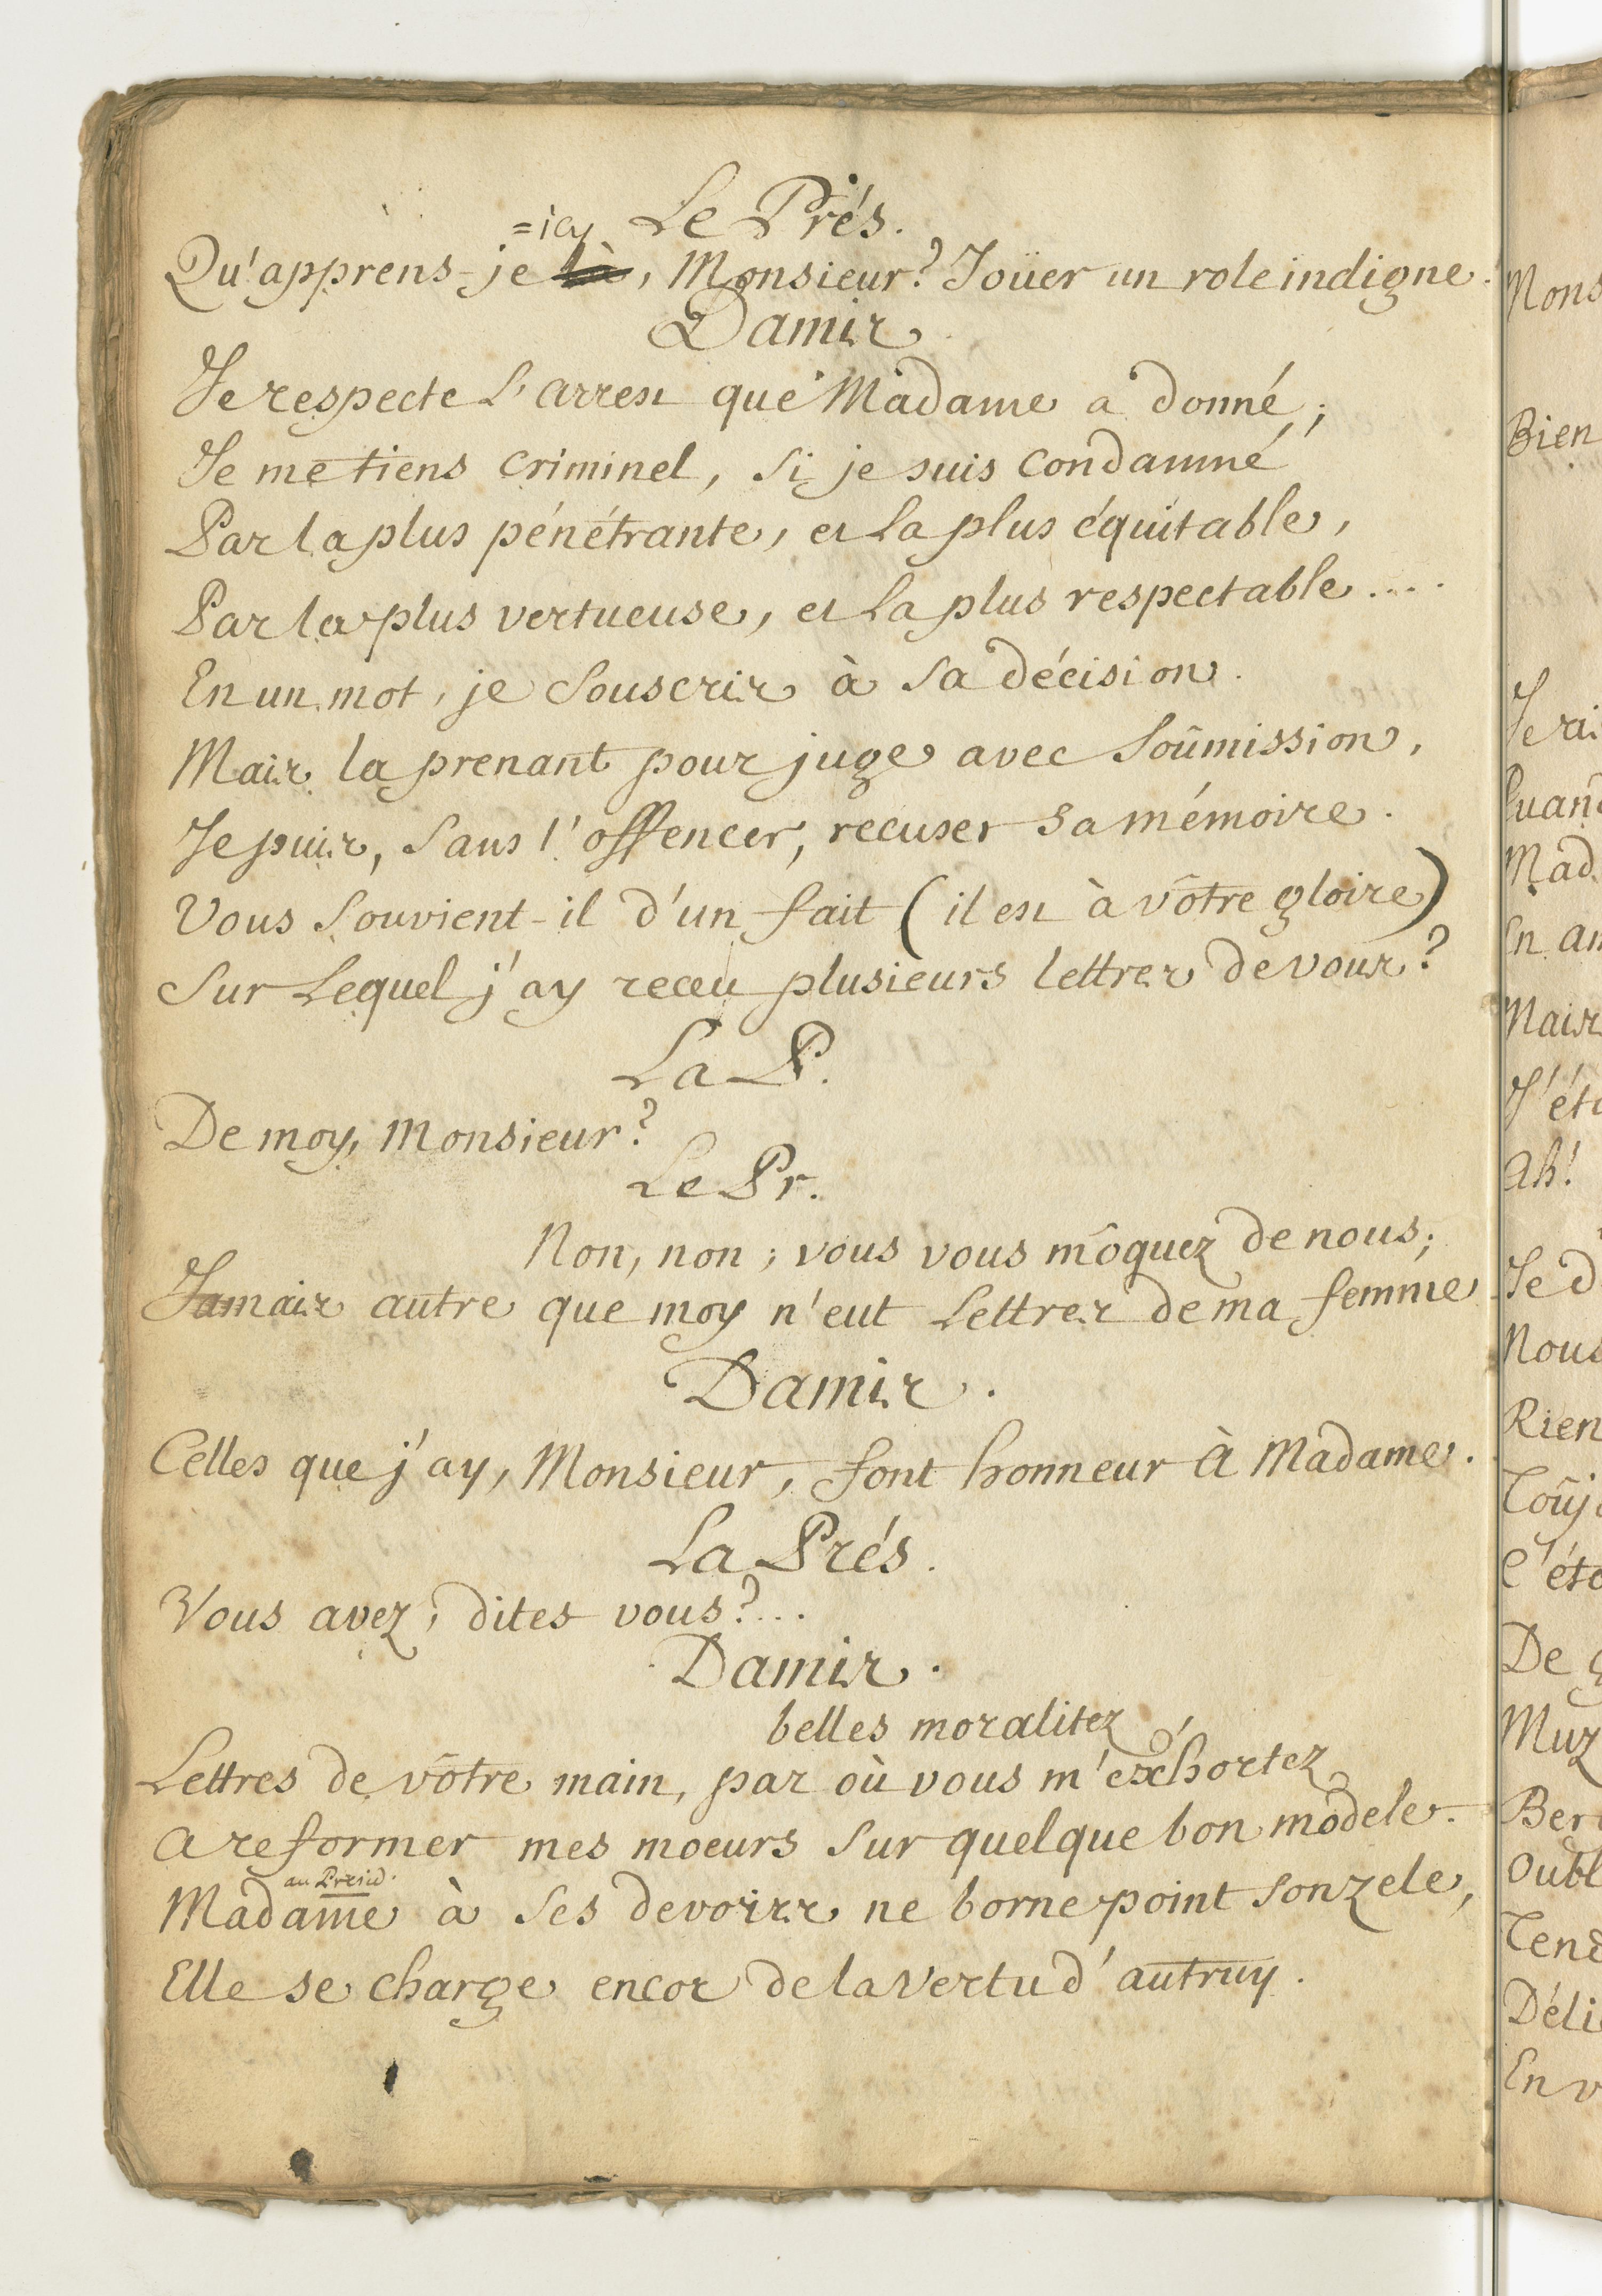 Le Prés.
=icy
Qu'apprens-je là, Monsieur? Joüer un role indigne.
Damis
Je respecte L'arrest que Madame a donné;
Je me tiens criminel, si je suis condamné
Par la plus pénétrante, et la plus équitable,
Par la plus vertueuse, et la plus respectable....
En un mot, je souscris à sa décision.
Mais la prenant pour juge avec soûmission,
Je puis, sans l'offencer, recuser sa mémoire.
Vous souvient-il d'un fait (il est à vôtre gloire)
Sur Lequel j'ay receu plusieurs lettres de vous?
La P.
De moy, Monsieur?
Le Pr.
Non, non; vous vous môquez de nous;
Jamais autre que moy n'eut Lettres de ma femme
Damis.
Celles que j'ay, Monsieur, font honneur à Madame.
La Prés.
Vous avez, dites vous?...
Damis.
belles moralitez
Lettres de vôtre main, par où vous m'exhortez
A reformer mes moeurs sur quelque bon modele.
au Presid.
Madame à ses devoirs ne borne point son zele,
Elle se charge encor de la vertu d'autruy.
Mons
Bien
Je rai
Quand
Mad
En am
Mais
J'éto
Ah!
Je d
Nous
Rien
Toûj
C'éto
De g
Muz
Ber
Oubl
Tend
Déli
En v